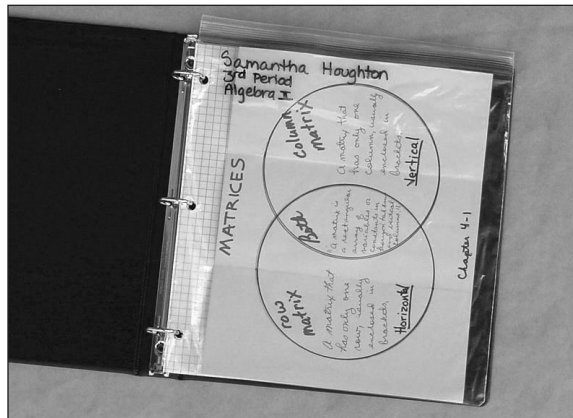 Samantha Houghton
3rd Period
Algebra II
MATRICES
row
matrix
A matrix that
has only one
row, usually
enclosed in
brackets.
Horizontal
Both
A matrix is
a rectangular
array of
variables or
constants in
column
matrix
A matrix that
has only one
column, usually
enclosed in
brackets.
Vertical
Chapter 4-1